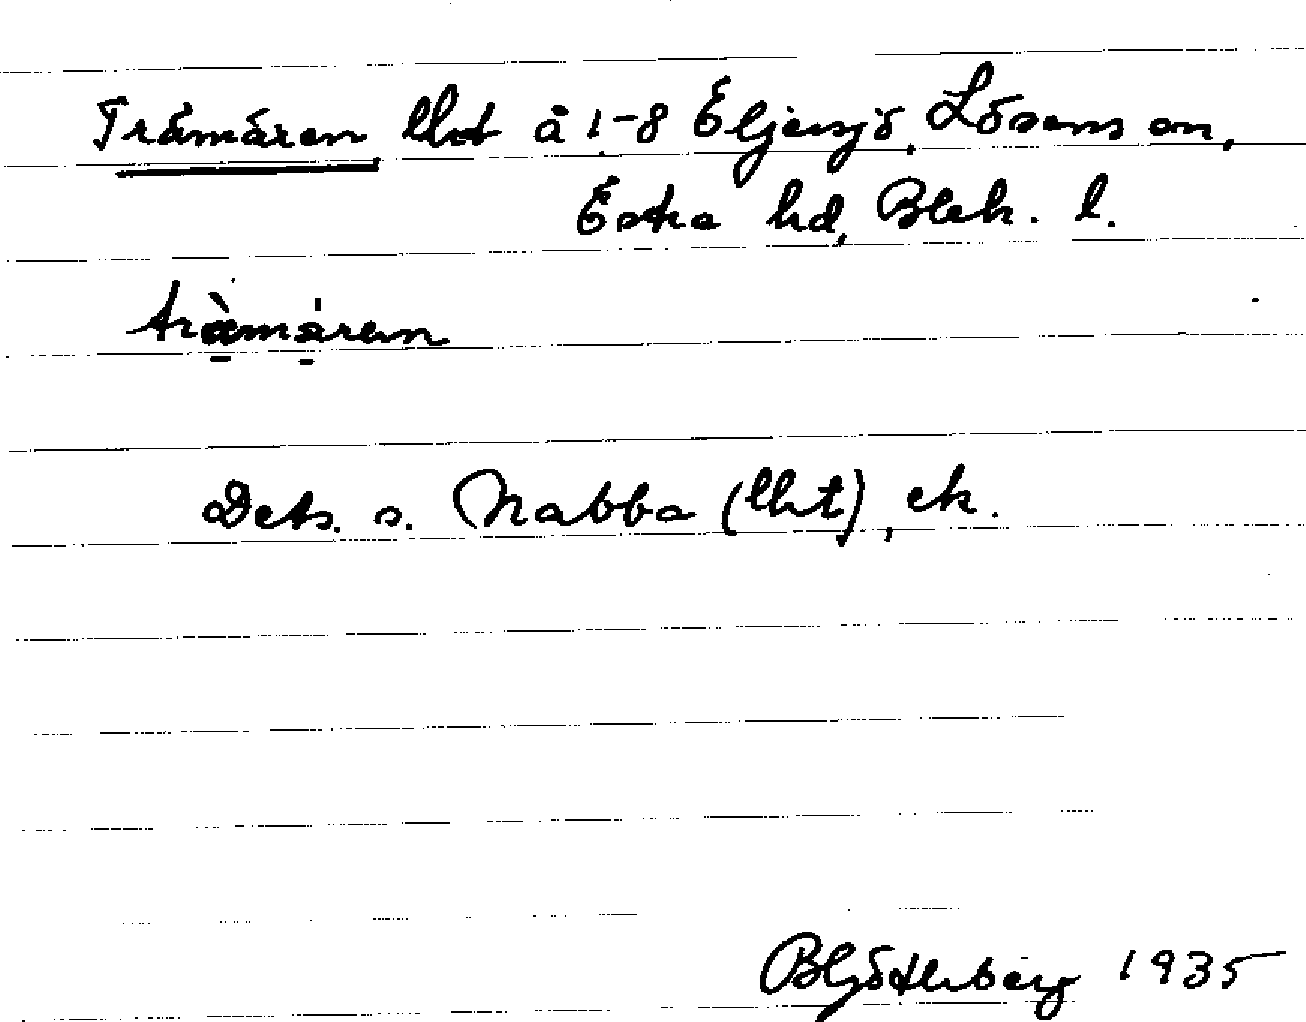 Tråmåren, lht å 1-8 Eljersjö, Lösens sn,
Östra hd, Blek. l.
tråmåren
Dets. s. Nabba (lht), ek.
B Göthberg 1935